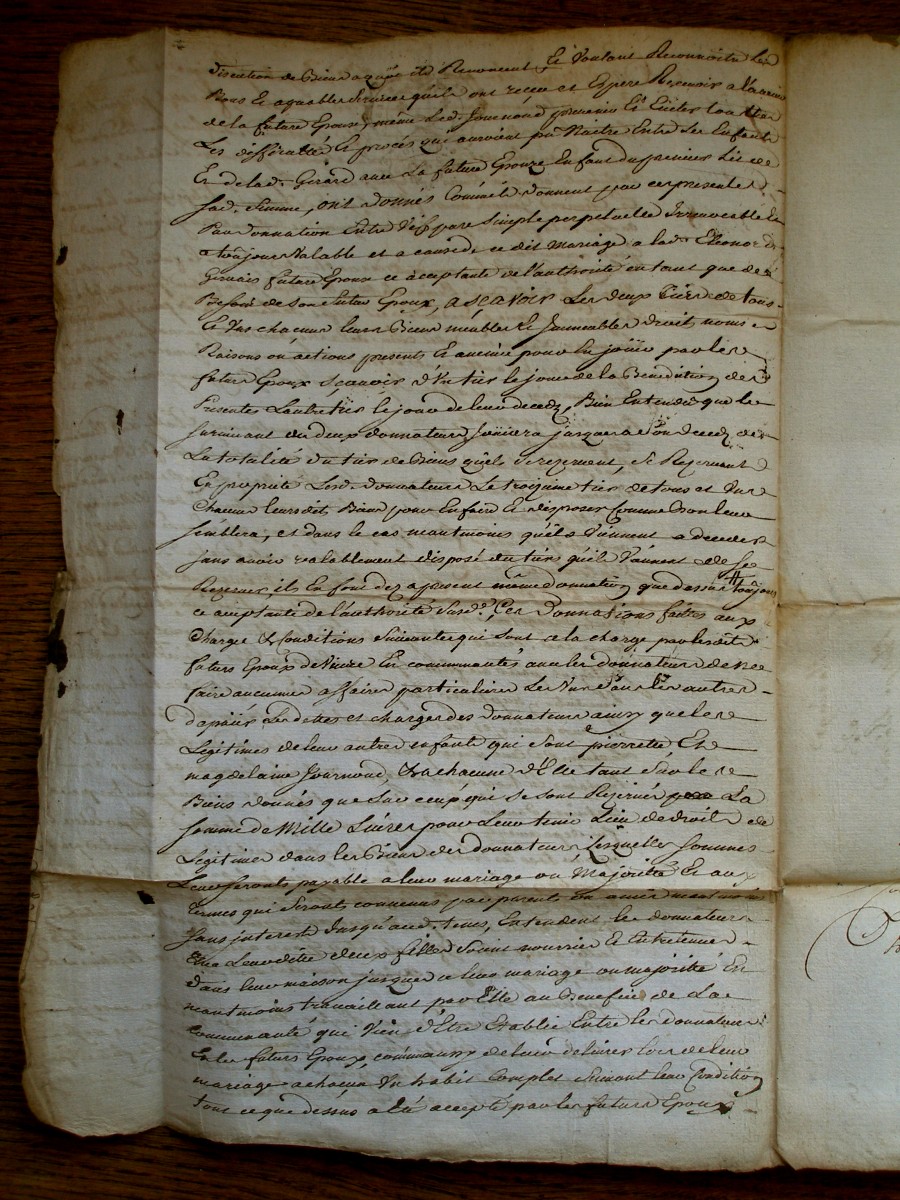 discution de Biens ayant été Renoncent, Et Voulant Reconnoitre Les
Bons Et agreables services qu'ils ont reçeu et Espere Recevoir a l'avenir
de la future Epouse, même Led. Journoud prevenir Et Eviter toutes
Les difficultés Et procés qui auroient pu Naitre Entre Les Enfants
Et de lad. Girard avec La future Epouze Enfant du premier Lit de
sad. femme, ont donnés Comme ils donnent par ces presentes
Par Donnation Entre Vifs pure Simple perpetuelle Irrevocable Et
toujours Valable et a cause de ce dit Mariage a lad. Eleonor
Gervais future Epouse ce acceptante de l'authorité en tant que de
Besoin de son futur Epoux, ascavoir Les deux tiers de tous
Et Uns chacuns leurs Biens meubles Et Immeubles droits noms
Raisons ou actions presents Et avenirs pour En joüir par les
futurs Epoux scavoir d'Un tier le jour de la Benediction des
Presentes L'autre tier le jour de leur decedz, Bien Entendu que le
survivant des deux donnateurs joüira jusques a son decedz de
La totalité du tier de Biens qu'ils se rezervent, se Rezervent
En proprieté Lesd. donnateurs Le troizieme tier de tous et Uns
Chacuns leursdits Biens pour En faire Et disposer Comme Bon leur
semblera, et dans le cas neantmoins qu'ils Viennent a deceder
sans avoir valablement disposé du tier qu'ils Viennent de se
Rezerver, ils En font dez apresent même donnation que dessus # toujours
ce acceptante de l'authorité Susd.e, Ces Donnations faites aux
Charges Et Conditions Suivantes qui sont a la charge par lesdits
futurs Epoux de Vivre En communauté avec les donnateurs de ne
faire aucunes affaires particulieres Les Uns sans Les autres
d'apaiier Les dettes et charges des donnateurs ainsy que les
Legitimes de leur autres enfants qui sont pierrette Et
magdelaine Journoud, a chacune d'Elle tant sur les
Biens donnés que sur ceux qui se sont Rezervés La
somme de Mille Livres pour Leur tenir Lieu de droits de
Legitimes dans les Biens des donnateurs Lesquelles sommes
Leur seronts payable a leur mariage ou Majorité Et aux
termes qui seronts convenus par parents En
sans interest Jusqu'aud. tems, Entendent les donnateurs
que Leursdites deux filles soient nourries Et Entretenues
dans leur maison jusques a leur mariage ou majorité En
neantmoins travaillant par Elle au Benefice de La
Communauté qui Vien d'Etre Etablie Entre les donnateurs
Et les futurs Epoux, comm'aussy de leur delivrer lors de leur
mariage a chacun Un habit Complet suivant leur Condition
tout ce que dessus a été accepté par les futurs Epoux